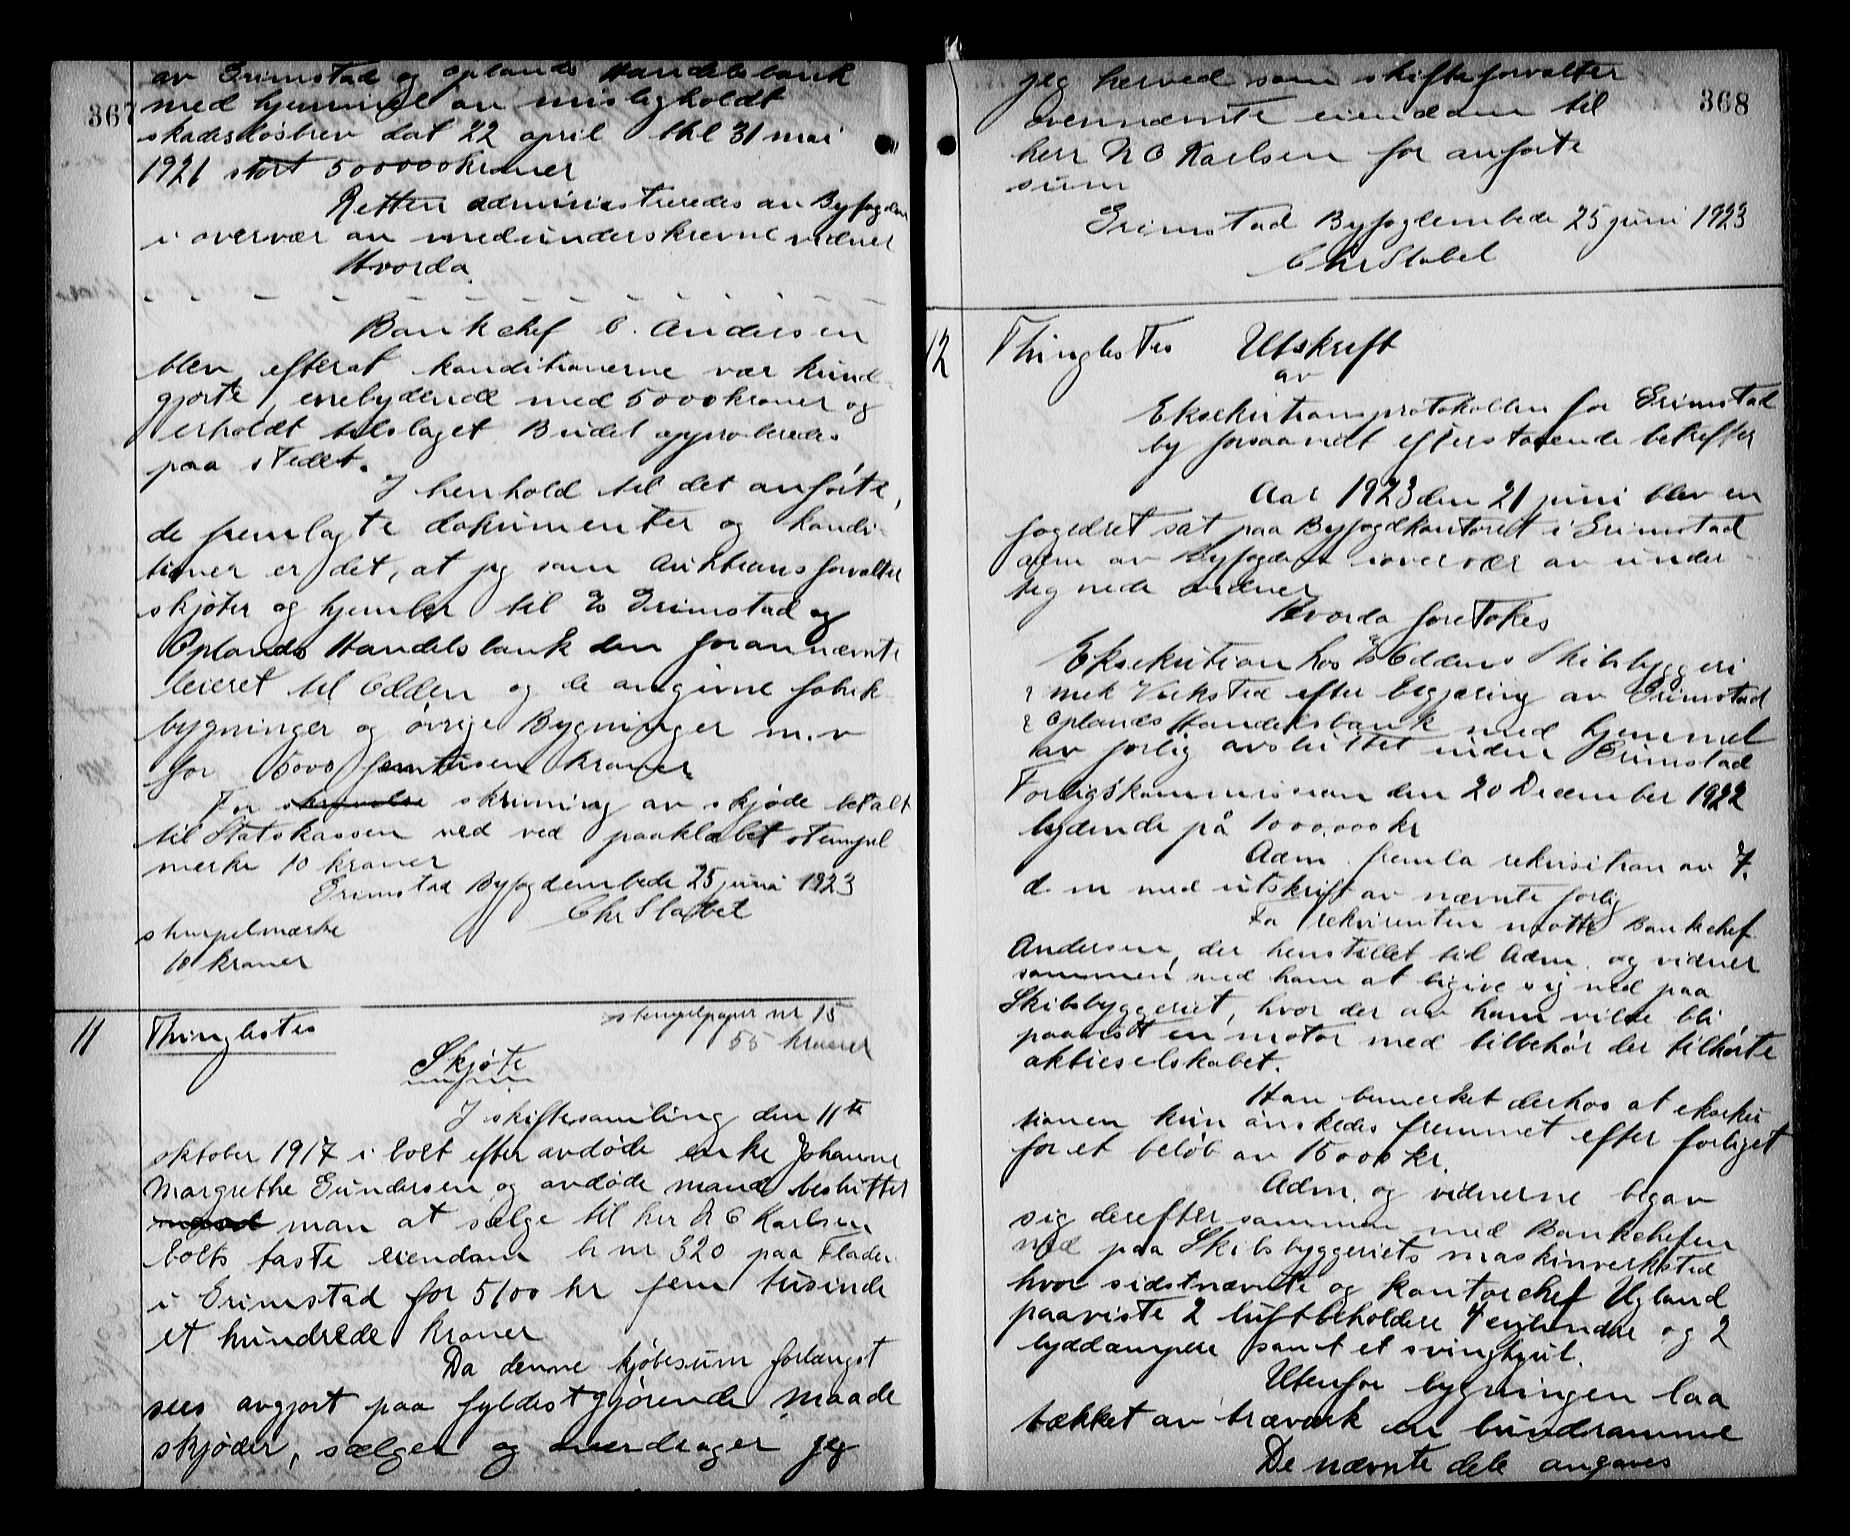 367
av Grimstad og Oplands Handelsbank
med hjemmel av misligholdt
skadesløsbrev dat 22 april thl 31 mai
1921 stort 500000 kroner
Retten administreredes av Byfogden
i overvær av medunderskrevne vidner
Hvorda
Bankchef C. Andersen
blev efterat konditionerne var kund-
gjorte, enebydende med 5000 kroner og
erholdt tilslaget. Budet approberedes
paa stedet.
I henhold til det anførte,
de fremlagte dokumenter og kondi-
tioner er det, at jeg som Auktionsforvalter
skjøter og hjemler til A/S Grimstad og
Oplands Handelsbank den forannævnte
leieret til Odden og de angivne fabrik-
bygninger og øvrige Bygninger m.v
for 5000 femtusen kroner
For skrivning av skjøde betalt
til Statskassen ved ved paaklæbet stempel-
merke 10 kroner
Grimstad Byfogdembede 25 juni 1923
Chr Stabel
stempelmærke
10 kroner
11 Thinglestes
stempelpapir nr 15
55 kroner
Skjøte
I skiftesamling den 11te
oktober 1917 i bolt efter avdøde enke Johanne
Margrethe Gundersen og avdøde mand besluttet
man at sælge til hr N C Karlsen
bolts faste eiendom br nr 320 paa Flader
i Grimstad for 5100 kr fem tusinde
et hundrede kroner
Da denne kjøbesum forlængst
sees avgjort paa fyldestgjørende maade
skjøder, sælger og overdrager jeg
368
jeg herved som skifteforvalter
ovennævnte eiendom til
herr N C Karlsen for anførte
sum
Grimstad Byfogdembede 25 juni 1923
Chr Stabel
12 Thinglestes Utskrift
av
Eksekutionsprotokollen for Grimstad
by forsaavidt efterstaaende betreffer
Aar 1923 den 21 juni blev en
fogedret sat paa Byfogdkontoret i Grimstad
adm av Byfogden i overvær av under-
tegnede vidner
Hvorda foretokes
Eksekution hos A/S Oddens Skibsbyggeri
& mek Verksted efter begjæring av Grimstad
& Oplands Handelsbank med hjemmel
av forlig avsluttet inden Grimstad
Forligskommission den 20 December 1922
lydende på 1000.000 kr
Adm. fremla rekvisition av 7.
d. m med utskrift av nævnte forlig
For rekvirenten møtte Bankchef
Andersen, der henstillet til Adm. og vidner
sammen med ham at begive sig ned paa
Skibsbyggeriet, hvor der av ham vilde bli
paavist en motor med tilbehør der tilhørte
aktieselskabet.
Han bemerket derhos at ekseku-
tionen kun ønskedes fremmet efter forliget
for et beløb av 15000 kr.
Adm. og vidnerne begav
sig derefter sammen med Bankchefen
ned paa Skibsbyggeriets maskinverksted
hvor sidstnævnte og kontorchef Ugland
paaviste 2 luftbeholdere 4 cylindre og 2
lyddæmpere samt et svinghjul.
Utenfor bygningen laa
tækket av træverk en bundramme
De nævnte dele angaves